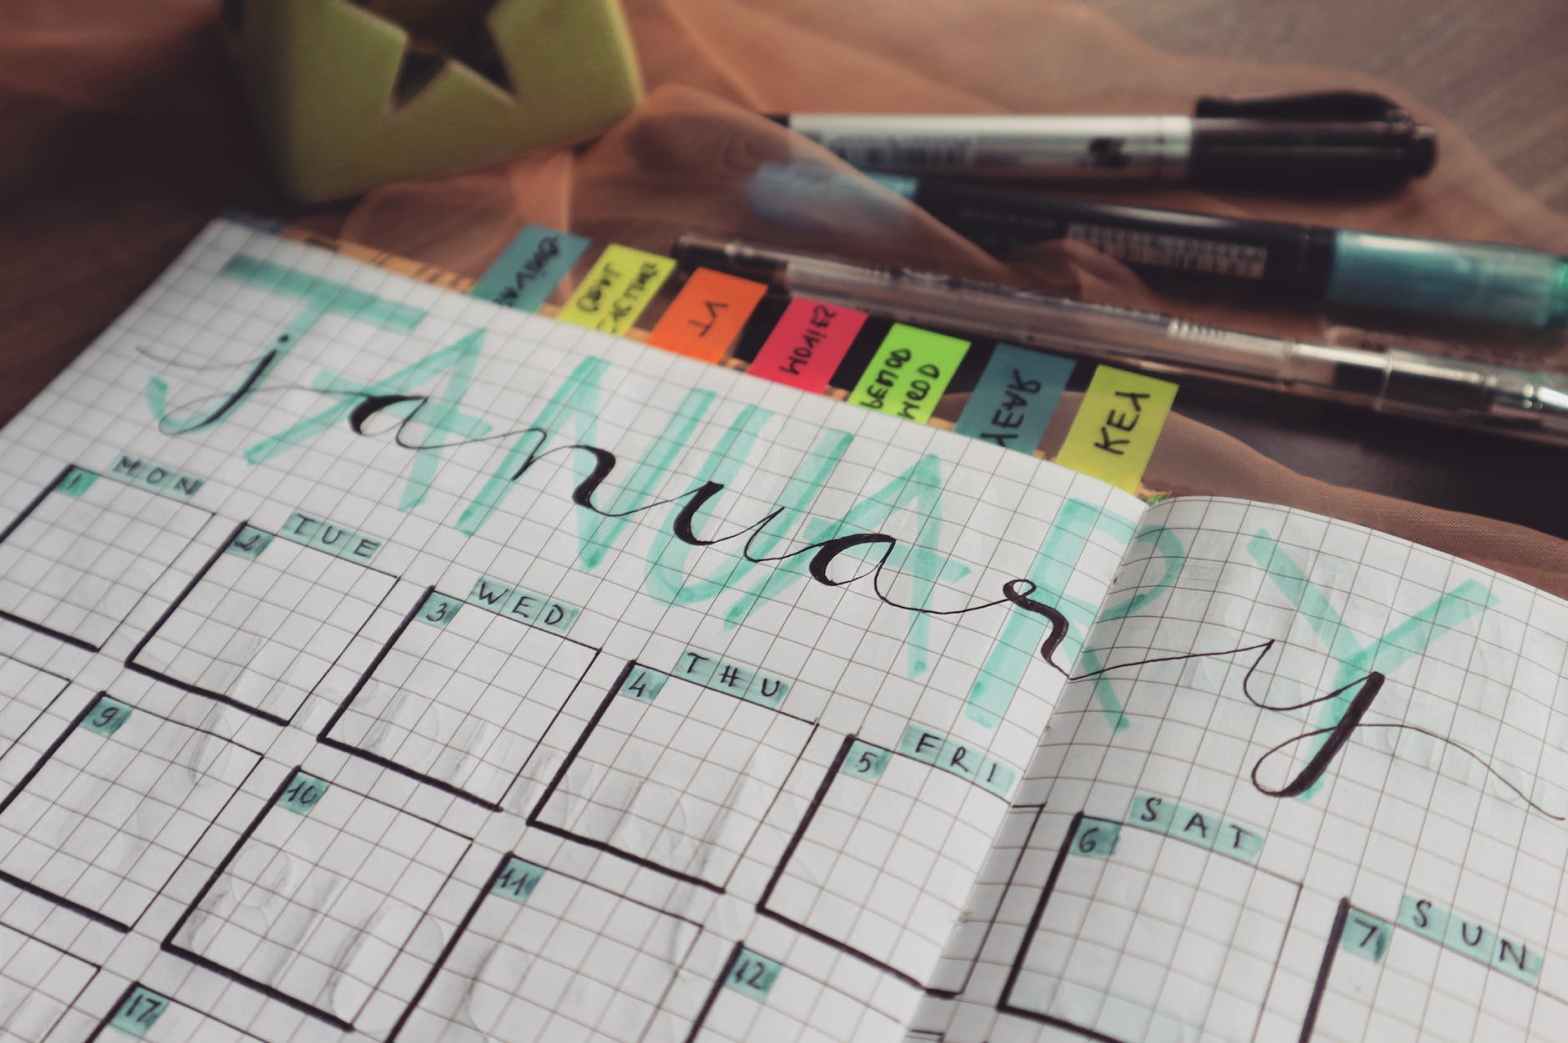 VT
MOVIES
PERIOD
MOOD
YEAR
KEY
JANUARY
january
MON
TUE
WED
THU
FRI
SAT
SUN
1 2 3 4 5 6 7
9 10 11 12
17